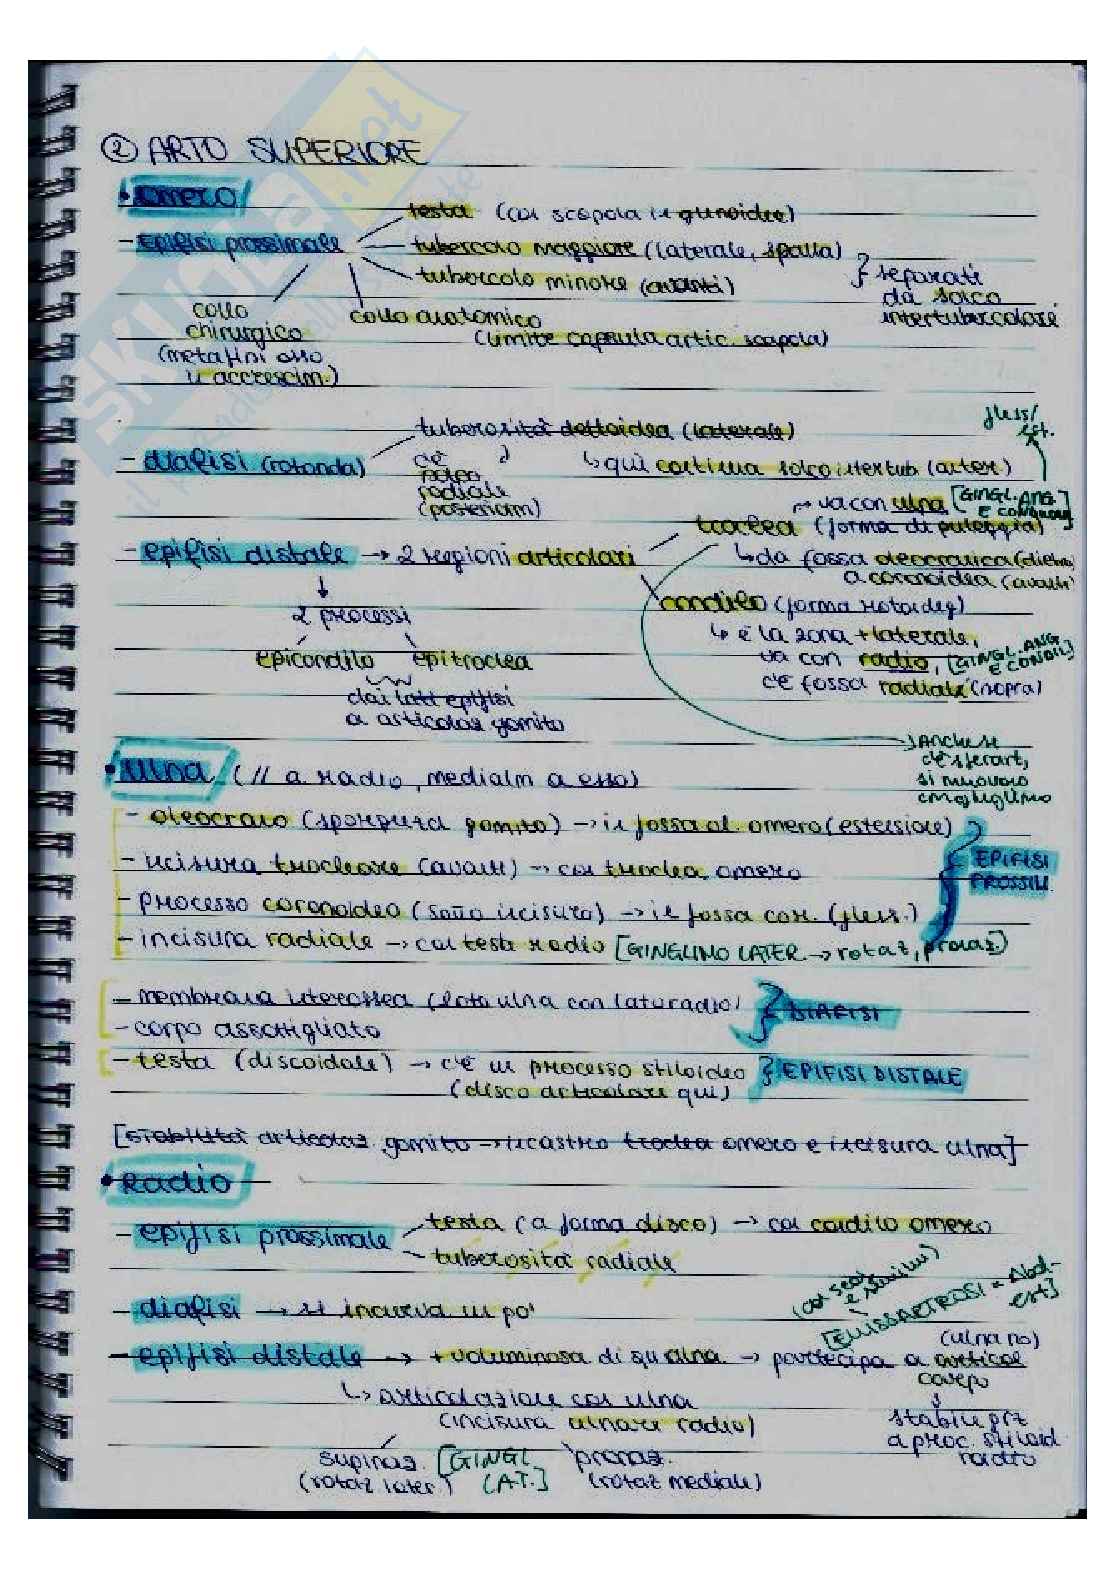 ② ARTO SUPERIORE
• omero
testa (con scapola in glenoidea)
- epifisi prossimale
tubercolo maggiore (laterale, spalla)
tubercolo minore (avanti)
} separati
da solco
intertubercolare
collo
chirurgico
(metafisi osso
in accrescim.)
collo anatomico
(limite capsula artic. scapola)
tuberosità deltoidea (laterale)
- diafisi (rotonda)
c'è
solco
radiale
(posteriorm)
↳ qui continua solco intertub (anter)
fless/
est.
→ va con ulna [GINGL. ANG.
troclea (forma di puleggia)
- epifisi distale → 2 regioni articolari
↳ da fossa oleocranica (dietro)
a coronoidea (avanti)
condilo (forma rotondeg)
↳ è la zona + laterale,
va con radio, [GINGL. ANG
E CONDIL]
c'è fossa radiale (sopra)
↓
2 processi
epicondilo epitroclea
dai lati epifisi
x articolaz gomito
Anche se
c'è sferart,
si muovono
con ginglimo
• ulna (// a radio, medialm a esso)
- oleocrano (sporgenza gomito) → in fossa ol. omero (estensione)
- incisura trocleare (avanti) → con troclea omero
- processo coronoideo (sotto incisura) → in fossa cor. (fless.)
- incisura radiale → con testa radio [GINGLIMO LATER. → rotaz, pronaz.]
} EPIFISI
PROSSIM.
- membrana interossea (lato ulna con lato radio)
- corpo assottigliato
} DIAFISI
- testa (discoidale) → c'è un processo stiloideo
(disco articolare qui)
} EPIFISI DISTALE
[stabilità articolaz. gomito → incastro troclea omero e incisura ulna]
• Radio
- epifisi prossimale
testa (a forma disco) → con condilo omero
tuberosità radiale
- diafisi → si incurva un po'
[ELISSARTROSI = Abd-
est]
- epifisi distale → + voluminosa di qu ulna → partecipa a articol
carpo
(ulna no)
↓
stabile prz
a proc. stiloid
radio
↳ articolazione con ulna
(incisura ulnare radio)
supinaz.
(rotaz later.)
[GINGL.
LAT.]
pronaz.
(rotaz mediale)
SKUOLA.net